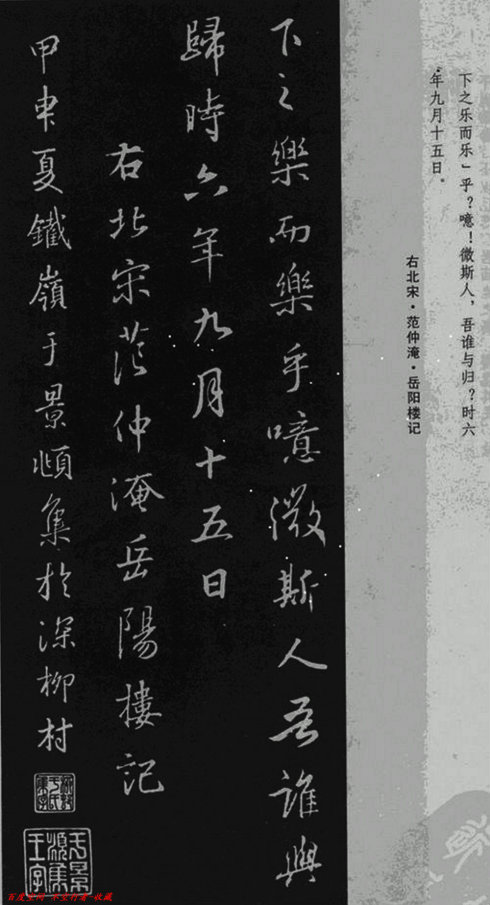 下之乐而乐」乎？噫！微斯人，吾谁与归？时六
年九月十五日。
右北宋·范仲淹·岳阳楼记
下之樂而樂乎噫微斯人吾誰與
歸時六年九月十五日
右北宋范仲淹岳陽樓記
甲申夏鐵嶺于景頫集於深柳村